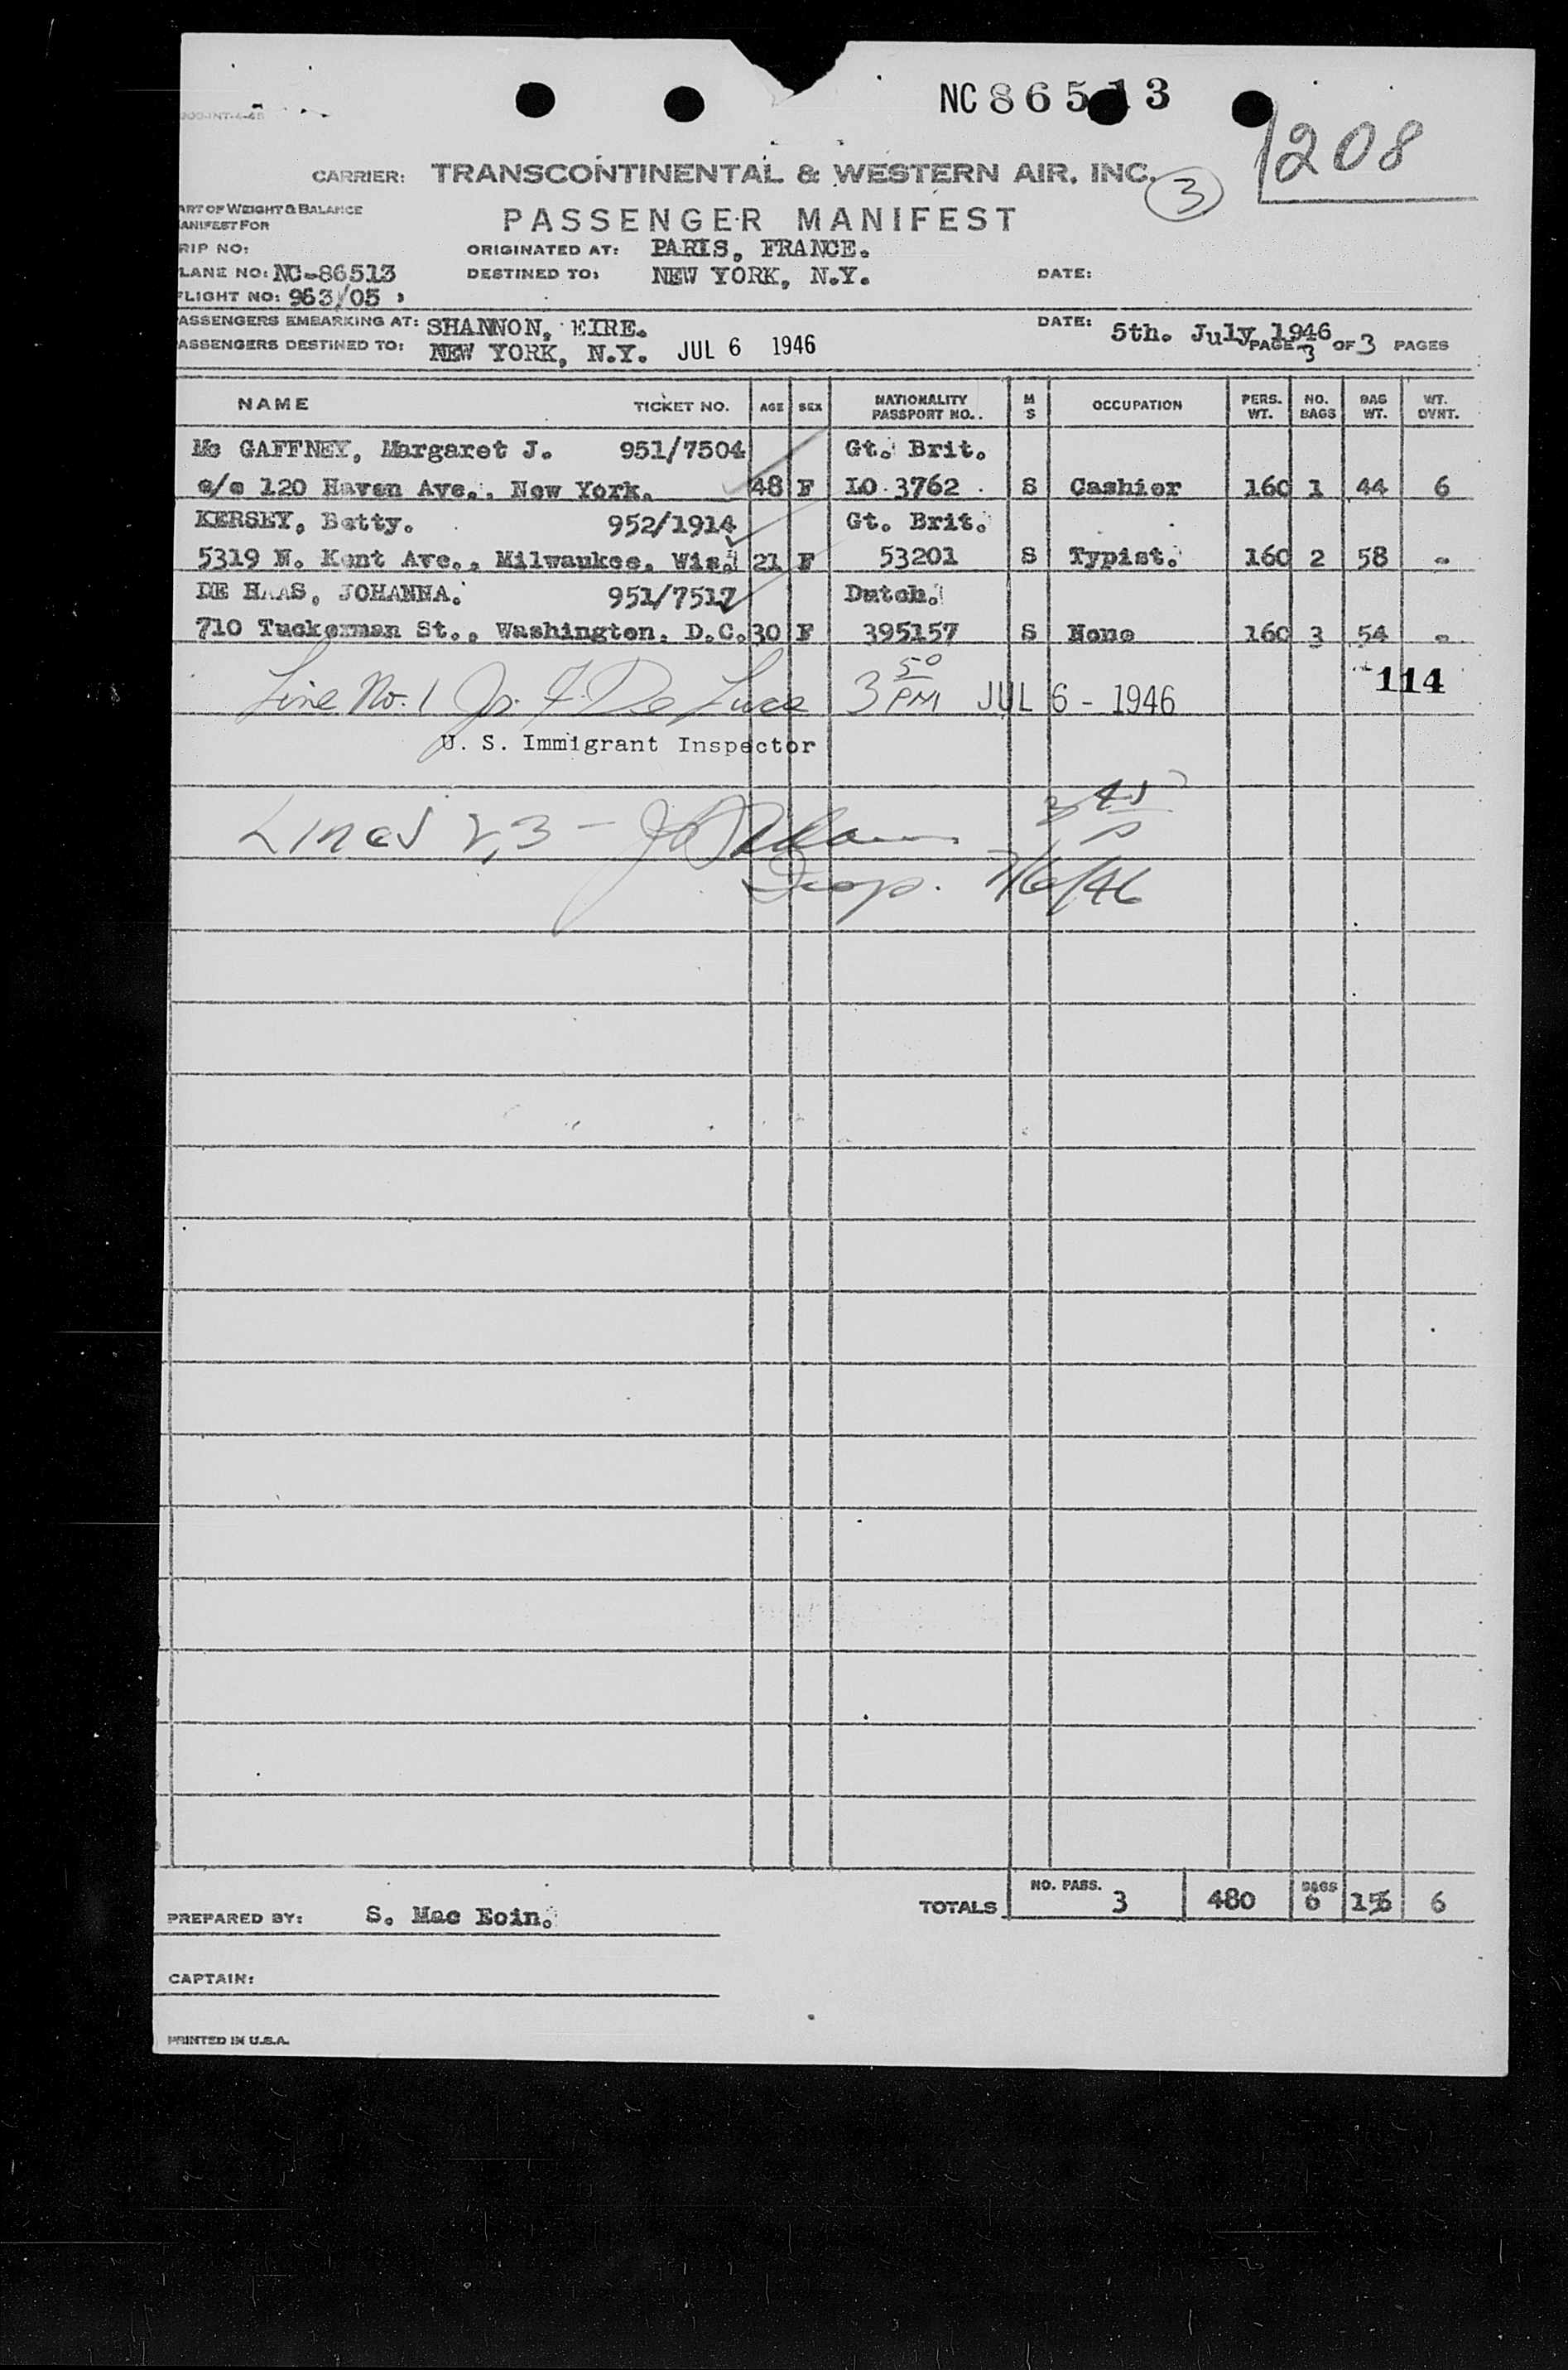 300-INT-4-45
NC 86513
1208
CARRIER: TRANSCONTINENTAL & WESTERN AIR, INC.
3
ART OF WEIGHT & BALANCE
ANIFEST FOR
PASSENGER MANIFEST
RIP NO:
ORIGINATED AT: PARIS, FRANCE.
LANE NO: NC-86513
DESTINED TO: NEW YORK, N.Y.
DATE:
FLIGHT NO: 963/05
ASSENGERS EMBARKING AT: SHANNON, EIRE.
DATE: 5th. July 1946
ASSENGERS DESTINED TO: NEW YORK, N.Y. JUL 6 1946
PAGE 3 OF 3 PAGES
NAME TICKET NO. AGE SEX NATIONALITY PASSPORT NO. M S OCCUPATION PERS. WT. NO. BAGS BAG WT. WT. OVHT.
Mc GAFFNEY, Margaret J. 951/7504 Gt. Brit.
c/o 120 Haven Ave., New York. 48 F LO 3762 S Cashier 160 1 44 6
KERSEY, Betty. 952/1914 Gt. Brit.
5319 N. Kent Ave., Milwaukee, Wis. 21 F 53201 S Typist. 160 2 58 -
DE HAAS, JOHANNA. 951/7517 Dutch.
710 Tuckerman St., Washington, D.C. 30 F 395157 S None 160 3 54 -
114
Line No. 1 Jos. F. De Luca 3 50 PM JUL 6 - 1946
U. S. Immigrant Inspector
Lines 2,3 - 3 45 P
Insp. 7/6/46
TOTALS NO. PASS. 3 480 BAGS 6 156 6
PREPARED BY: S. Mac Eoin.
CAPTAIN:
PRINTED IN U.S.A.